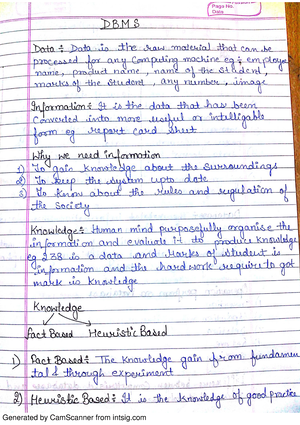 Page No.
Date
DBMS
Data : Data is the raw material that can be
processed for any Computing machine eg : employee
name, product name, name of the student,
marks of the student, any number, image
Information : It is the data that has been
Converted into more useful or intelligable
form eg report card sheet
Why we need information
1) To gain knowledge about the surroundings
2) To keep the system upto date
3) To know about the rules and regulation of
the Society
Knowledge : Human mind purposefully organise the
information and evaluate it to produce knowledge
eg 238 is a data and marks of student is
information and the hard work require to got
mark is knowledge
Knowledge
Fact Based Heuristic Based
1) Fact Based : The knowledge gain from fundamen
tal & through experiment
2) Heuristic Based : It is the knowledge of good practice
Generated by CamScanner from intsig.com